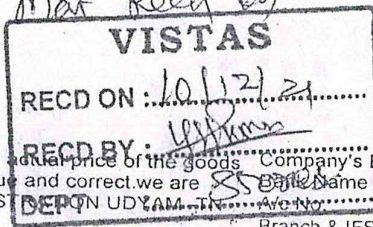 Mat Recd by
VISTAS
RECD ON : 10/12/21
RECD BY :
actual price of the goods Company's B
ue and correct.we are Bank Name
DEPT ON UDYAM -TN A/c No.
Branch & IFS